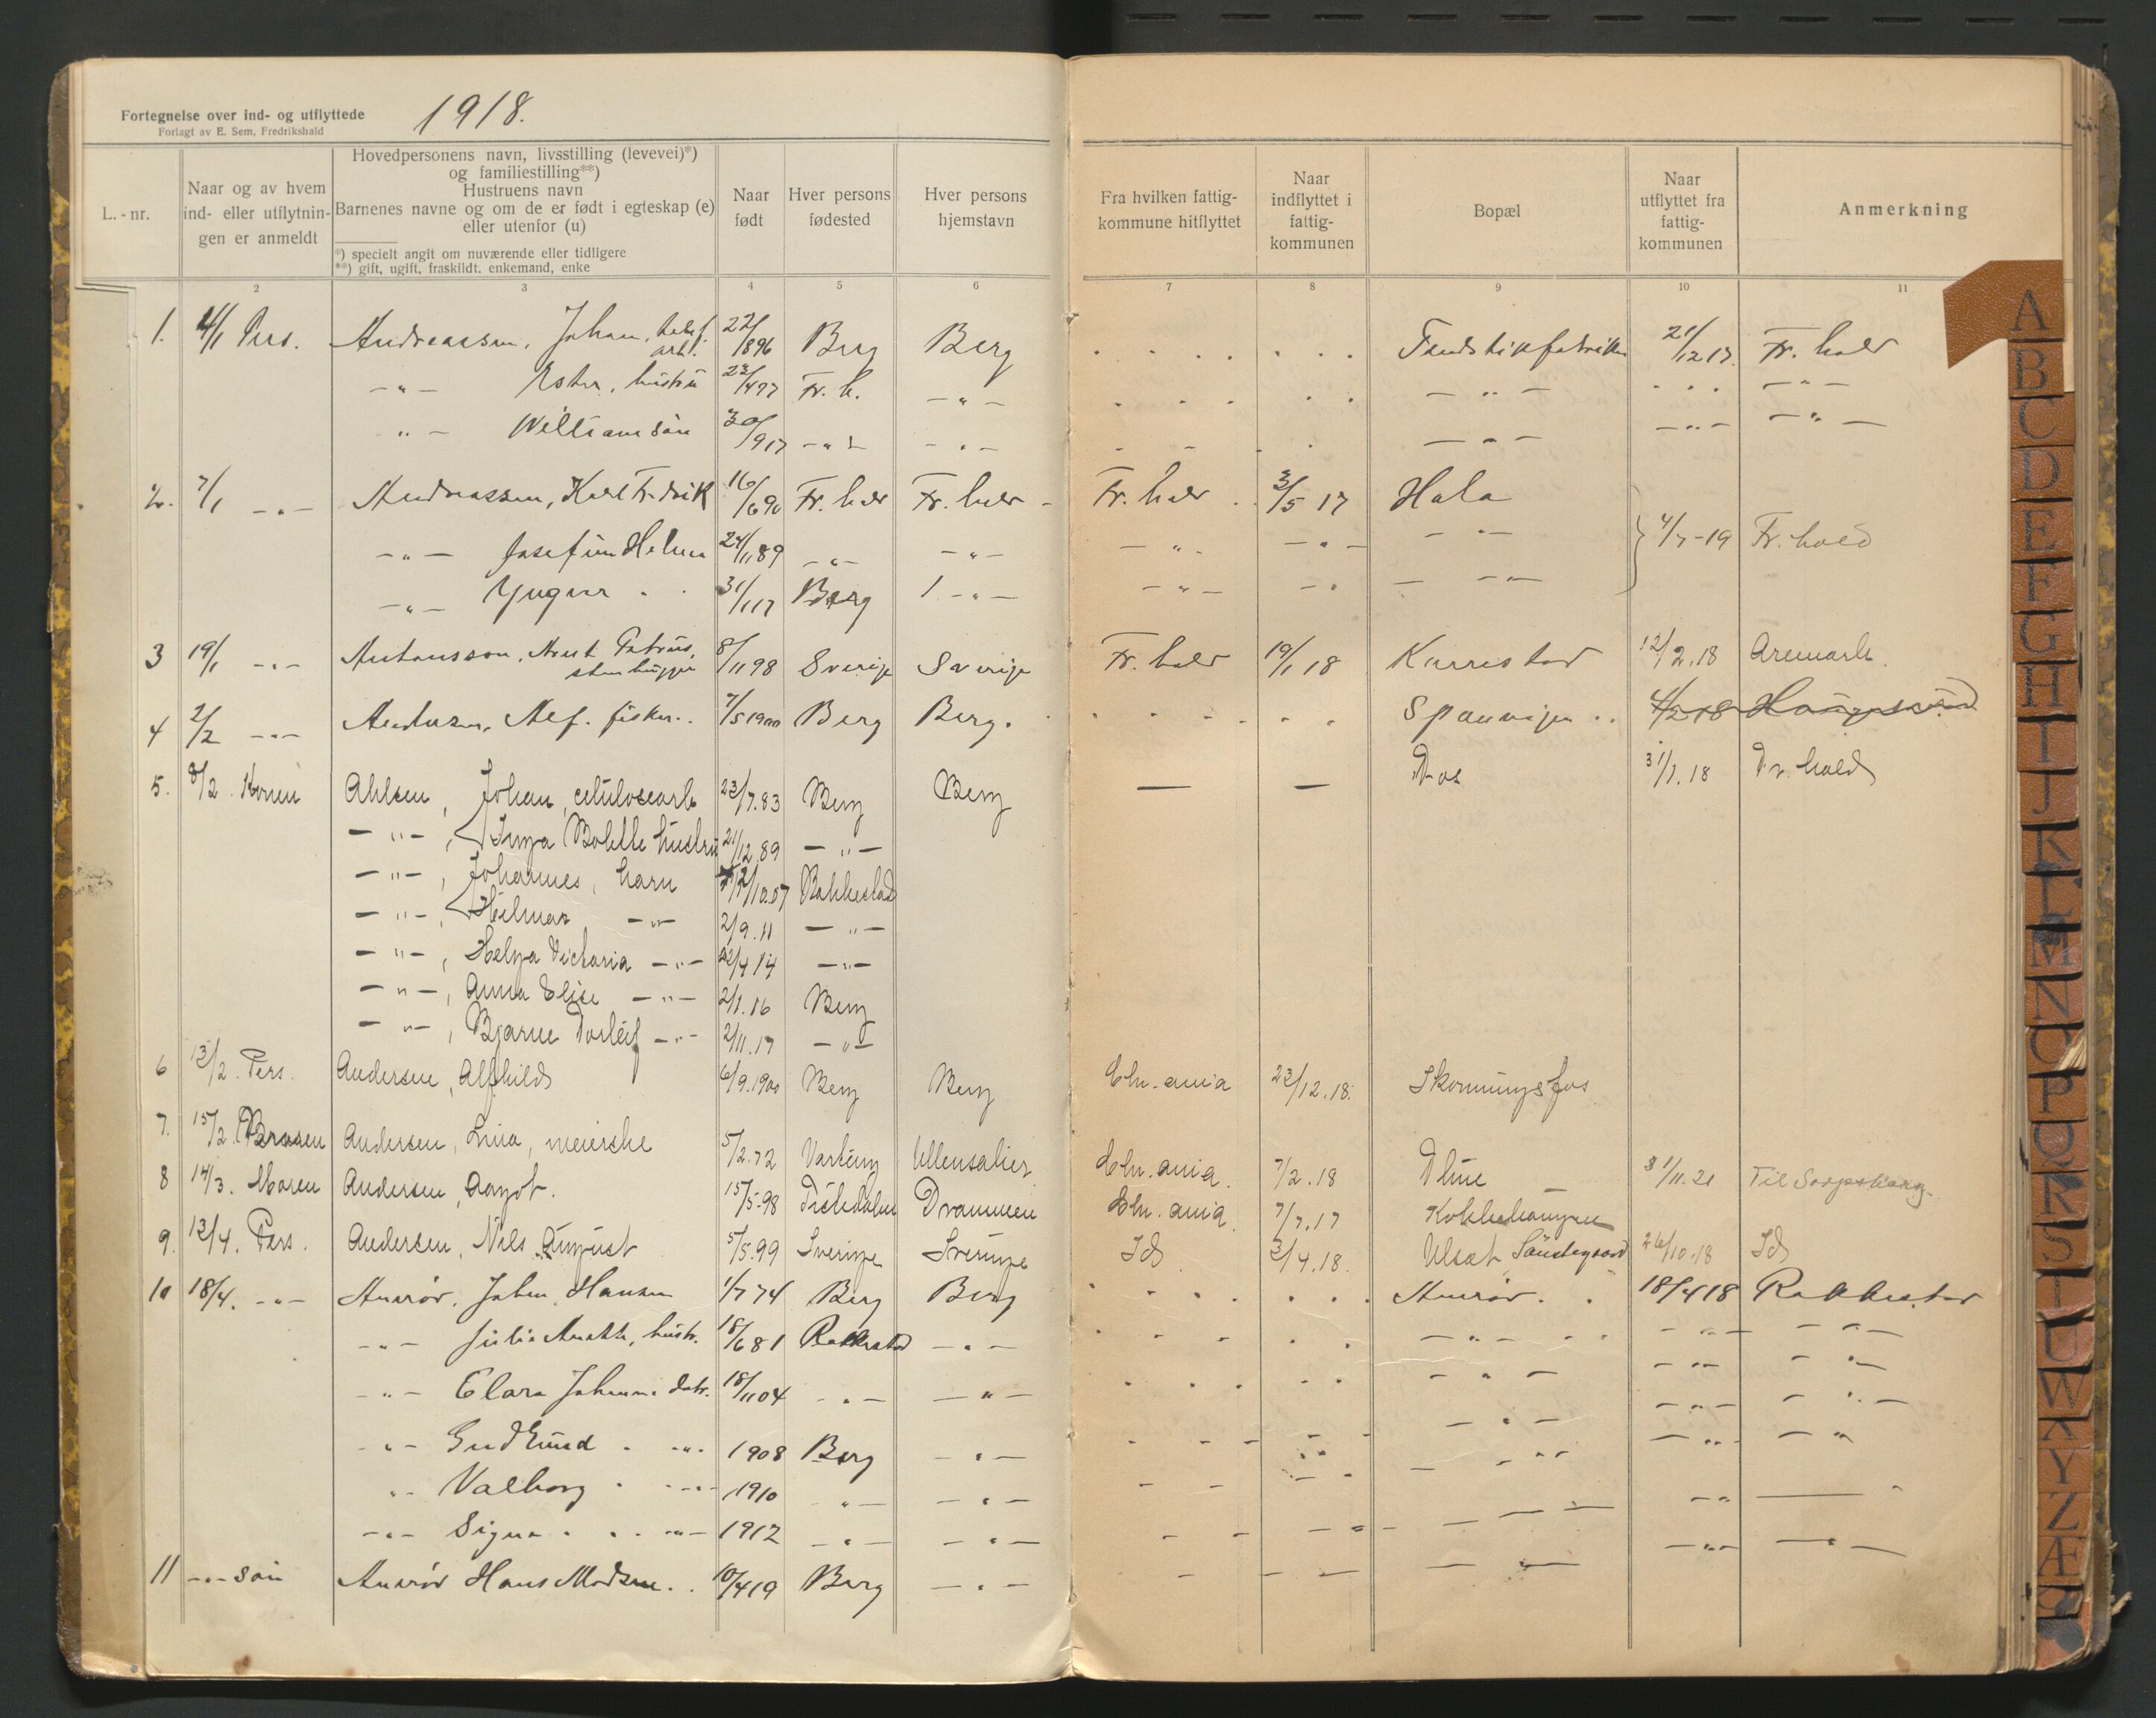 Fortegnelse over ind- og utflyttede
Forlagt av E. Sem, Fredrikshald
1918.
L. - nr.
Naar og av hvem ind- eller utflytnin- gen er anmeldt
Hovedpersonens navn, livsstilling (levevei)*)
og familiestilling**)
Hustruens navn
Barnenes navne og om de er født i egteskap (e)
eller utenfor (u)
*) specielt angit om nuværende eller tidligere
**) gift, ugift, fraskildt, enkemand, enke
Naar født
Hver persons fødested
Hver persons hjemstavn
Fra hvilken fattig- kommune hitflyttet
Naar indflyttet i fattig- kommunen
Bopæl
Naar utflyttet fra fattig- kommunen
Anmerkning
2 3 4 5 6 7 8 9 10 11
1. 4/1 Pers. Andreassen, Johan, arb. 22/1 896 Berg Berg 21/12 17. Fr. hald
-"- Ester, hustru 23/4 97 Fr. h. -"- -"- -"-
"- William søn 30/9 17 -"- -"- -"- -"- -"-
2. 7/1 -"- Andreassen, Karl Fredrik 16/6 90 Fr. hald Fr. hald Fr. hald 3/5 17 Hola
-"- Josefine Helene 24/11 89 -"- -"- -"- -"- -"- 4/7-19 Fr. hald
-"- Yngvar 31/1 17 Berg -"- -"- -"- -"-
3 19/1 -"- Antonsson, stenhugger 8/11 98 Sverige Sverige Fr. hald 19/1 18 Karrestad 12/2.18 Aremark.
4 2/2 -"- Andersen, Alf. fisker. 7/5 1900 Berg Berg. Sponvigen 4/2 18
5. 8/2. Konen Ahlsen, Johan, celulosearb 23/7.83 Berg Berg — — Dos 31/7.18 Fr. hald
-"-, Inga Bolette hustru 21/12.89 -"-
-"-, Johannes, barn 12/10.07 Rakkestad
-"-, Hilmar -"- 2/9.11 -"-
-"-, Helga Victoria -"- 22/4 14 -"-
-"-, Anna Elise -"- 2/1.16 Berg
-"-, Bjarne Torleif -"- 2/11.17 -"-
6 13/2. Pers. Andersen, Alfhild 6/9.1900 Berg Berg Chr.ania 23/12.18. Skonningsfos
7. 15/2. Andersen, Lina, meierske 5/2.72 Varteig Ullensaker Chr.ania. 7/2.18 31/11.21 Til Sarpsborg.
8 14/3. Maren Andersen, Aagot. 15/5-98 Tistedalen Drammen Chr.ania. 7/7.17
9. 13/4. Pers. Andersen, Nils August 5/5.99 Sverige Sverige Id 3/4.18. Ulsat, 26/10.18 Id
10 18/4. -"- Anarød, Johan Hansen 1/7 74 Berg Berg Anarød. 18/4 18 Rakkestad
-"- Julie Anette, hustr. 18/6 81 Rakkestad -"- -"- -"- -"-
-"- Clara Johanne datr. 18/11 04 -"- -"- -"- -"- -"-
-"- Gudrund "- 1908 Berg -"- -"- -"- -"-
"- Valborg -"- 1910 -"- -"- -"- -"- -"-
-"- Signe -"- 1912 -"- -"- -"- -"-
11 -"- søn Anarød Hans Madsen 10/4 19 Berg -"- -"- -"- -"-
A
B
C
D
E
F
G
H
I
J
K
L
M
N
O
P
Q
R
S
T
U
W
X
Y
Z
Æ
Ø